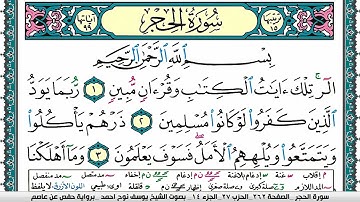 ترتيبها ١٥
سُورَةُ الحِجْرِ
آياتها ٩٩
بِسْمِ اللَّهِ الرَّحْمَٰنِ الرَّحِيمِ
الٓر تِلْكَ ءَايَٰتُ الْكِتَٰبِ وَقُرْءَانٍ مُّبِينٍ ١ رُّبَمَا يَوَدُّ
الَّذِينَ كَفَرُوا۟ لَوْ كَانُوا۟ مُسْلِمِينَ ٢ ذَرْهُمْ يَأْكُلُوا۟
وَيَتَمَتَّعُوا۟ وَيُلْهِهِمُ الْأَمَلُ فَسَوْفَ يَعْلَمُونَ ٣ وَمَا أَهْلَكْنَا
سورة الحجر الصفحة ٢٦٢ الحزب ٢٧ الجزء ١٤ بصوت الشيخ يوسف نوح احمد برواية حفص عن عاصم